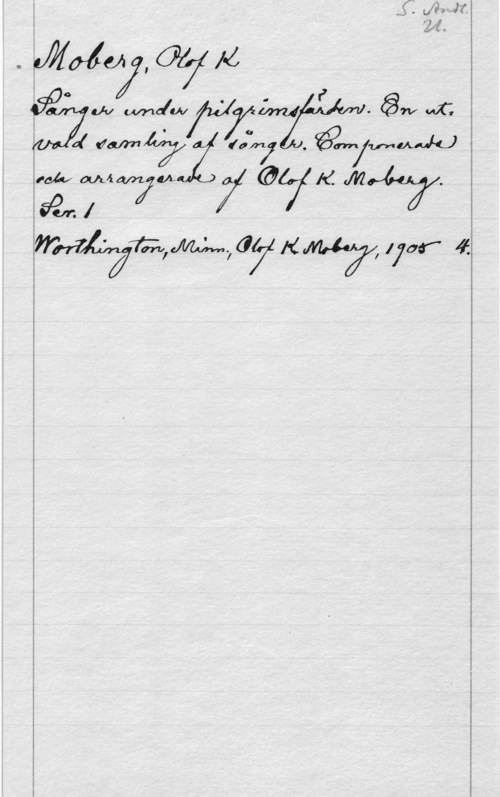 S. Andl.
U.
Moberg, Olof K
Sånger under pilgrimsfärden. En ut-
vald samling af sånger. Componerade
och arrangerade af Olof K. Moberg.
Ser. 1
Worthington, Minn., Olof K Moberg, 1905 4.